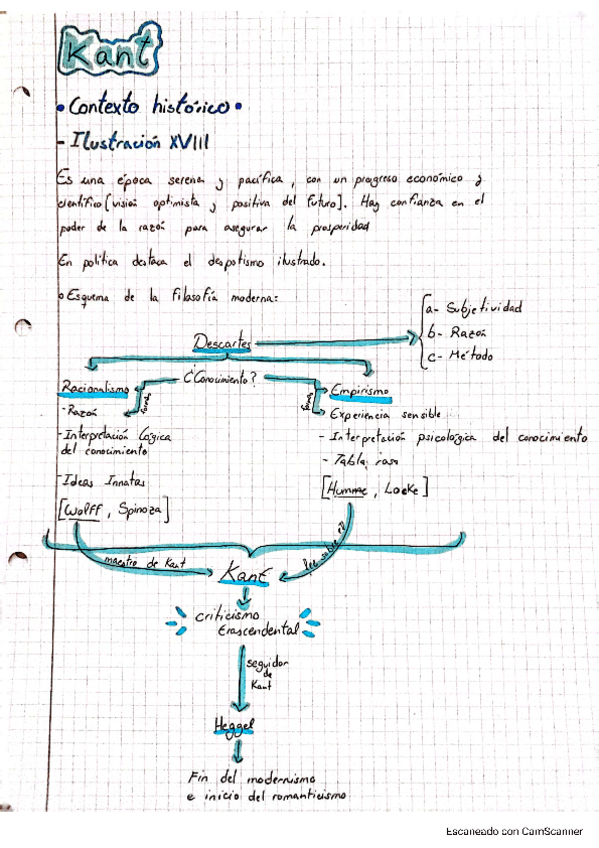 Kant
• Contexto histórico •
- Ilustración XVIII
Es una época serena y pacífica, con un progreso económico y
científico [visión optimista y positiva del futuro]. Hay confianza en el
poder de la razón para asegurar la prosperidad
En política destaca el despotismo ilustrado.
o Esquema de la filosofía moderna:
Descartes
a- Subjetividad
b- Razón
c- Método
¿Conocimiento?
Racionalismo
- Razón
- Interpretación lógica
del conocimiento
- Ideas Innatas
[Wolff, Spinoza]
Empirismo
- Experiencia sensible
- Interpretación psicológica del conocimiento
- Tabla rasa
[Humme, Locke]
maestro de Kant
lee sobre él
Kant
criticismo
trascendental
seguidor
de
Kant
Heggel
Fin del modernismo
e inicio del romanticismo
Escaneado con CamScanner